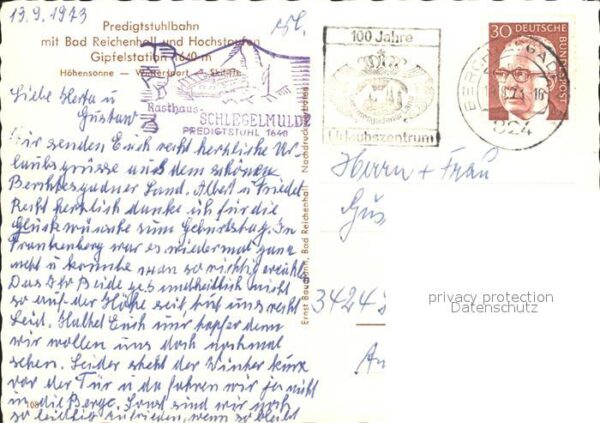 13.9.1973
Predigtstuhlbahn
mit Bad Reichenhall und Hochstaufen
Gipfelstation 1640 m
Höhensonne — Wintersport — Skilifte
Rasthaus
SCHLEGELMULDE
PREDIGTSTUHL 1640
100 Jahre
Urlaubszentrum
30 DEUTSCHE
BUNDESPOST
BERCHTESGADEN
824
Liebe Herta u
Gustav
Wir senden Euch recht herzliche Ur
laubsgrüsse aus dem schönen
Berchtesgadner Land. Albert u Friedel
Recht herzlich danke ich für die
Glückwünsche zum Geburtstag. In
Frankenberg war es wiedermal ganz
nett u konnte man so richtig
Das Ihr Beide gesundheitlich nicht
so auf der Höhe seit tut uns recht
Leid. Haltet Euch nur tapfer denn
wir wollen uns doch nochmal
sehen. Leider steht der Winter kurz
vor der Tür u da fahren wir ja nicht
in die Berge. Sonst sind wir noch
so leidlich zufrieden, wenn so bleibt
Ernst Baumann, Bad Reichenhall Nachdruck verboten
Herrn + Frau
Gus
3424
An
privacy protection
Datenschutz